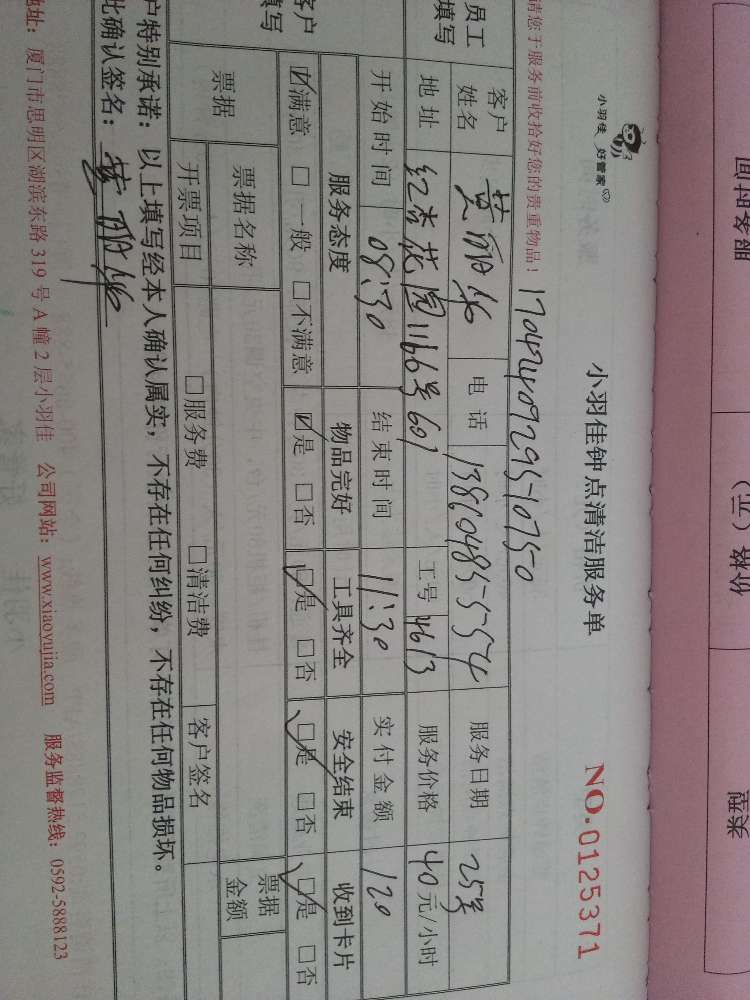 小羽佳 好管家
小羽佳钟点清洁服务单 NO.0125371
请您于服务前收拾好您的贵重物品！ 17042409295-10750
员工填写 客户姓名 黄丽华 电话 13860485554 服务日期 25号
地址 红杏花园1166号601 工号 4613 服务价格 40元/小时
开始时间 08:30 结束时间 11:30 实付金额 120
客户填写 服务态度 物品完好 工具齐全 安全结束 收到卡片
☑满意 □一般 □不满意 ☑是 □否 ☑是 □否 ☑是 □否 ☑是 □否
票据 票据名称 票据金额
开票项目 □服务费 □清洁费 客户签名
户特别承诺：以上填写经本人确认属实，不存在任何纠纷，不存在任何物品损坏。
此确认签名：黄丽华
地址：厦门市思明区湖滨东路319号A幢2层小羽佳 公司网站：www.xiaoyujia.com 服务监督热线：0592-5888123
服务时间
价格（元）
类型